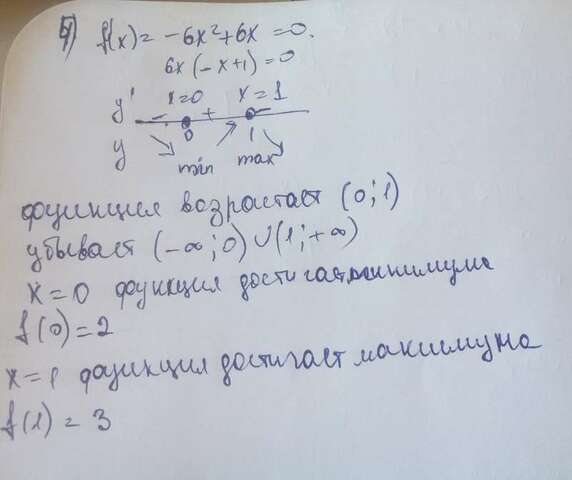 f(x) = -6x²+6x =0.
6x(-x+1)=0
x=0 x=1
y' - + -
0 1
y min max
функция возрастает (0;1)
убывает (-∞;0)∪(1;+∞)
x=0 функция достигает минимума
f(0)=2
x=1 функция достигает максимума
f(1) = 3